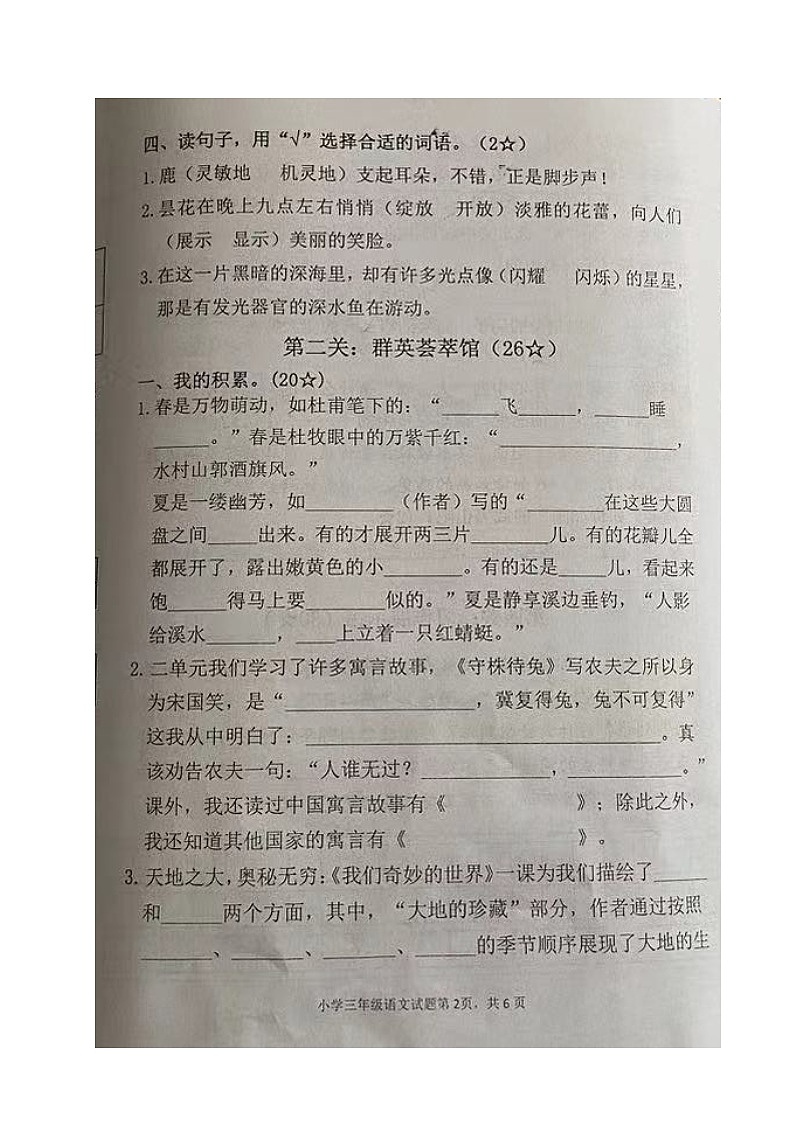 四、读句子，用“√”选择合适的词语。（2☆）
1.鹿（灵敏地　机灵地）支起耳朵，不错，正是脚步声！
2.昙花在晚上九点左右悄悄（绽放　开放）淡雅的花蕾，向人们
（展示　显示）美丽的笑脸。
3.在这一片黑暗的深海里，却有许多光点像（闪耀　闪烁）的星星，
那是有发光器官的深水鱼在游动。
第二关：群英荟萃馆（26☆）
一、我的积累。(20☆)
1.春是万物萌动，如杜甫笔下的：“______飞______，______睡
______。”春是杜牧眼中的万紫千红：“__________________,
水村山郭酒旗风。”
夏是一缕幽芳，如_________（作者）写的“________在这些大圆
盘之间_____出来。有的才展开两三片________儿。有的花瓣儿全
都展开了，露出嫩黄色的小________。有的还是_____儿，看起来
饱______得马上要________似的。”夏是静享溪边垂钓，“人影
给溪水_______，____上立着一只红蜻蜓。”
2.二单元我们学习了许多寓言故事，《守株待兔》写农夫之所以身
为宋国笑，是“___________________，冀复得兔，兔不可复得”
这我从中明白了：____________________________________。真
该劝告农夫一句：“人谁无过？____________，____________。”
课外，我还读过中国寓言故事有《　　　　　　》；除此之外，
我还知道其他国家的寓言有《　　　　　　　　》。
3.天地之大，奥秘无穷：《我们奇妙的世界》一课为我们描绘了______
和______两个方面，其中，“大地的珍藏”部分，作者通过按照
_______、_______、_______、_______的季节顺序展现了大地的生
小学三年级语文试题第2页，共6页